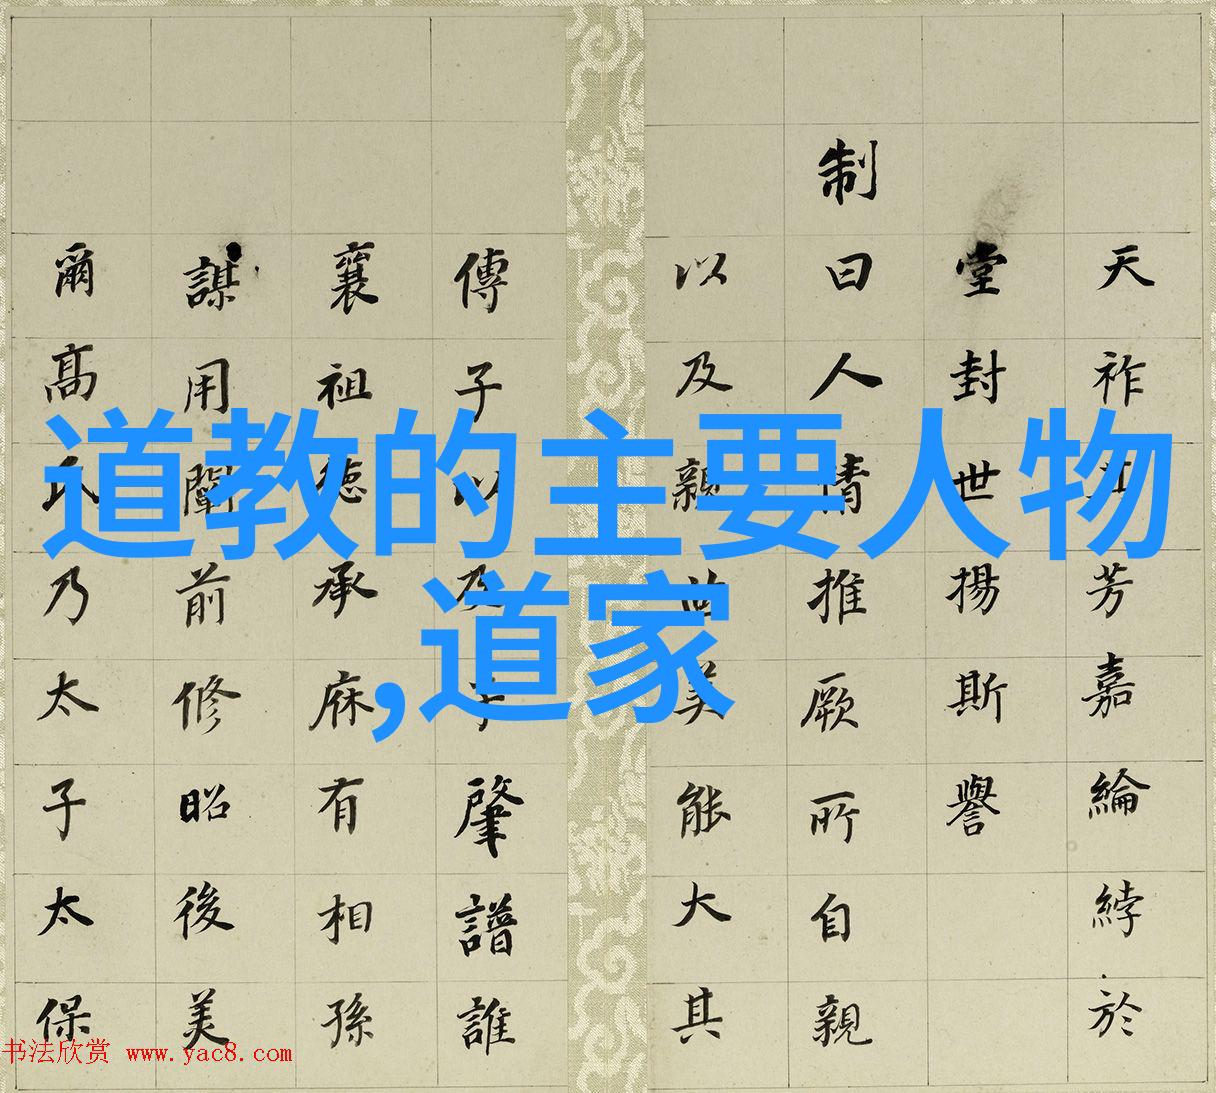 道教的主要人物
,道家
天祚芳嘉綸綍於
堂封世揚斯譽
制曰人情推厥所自親
以及親世美能大其
傳子以及子肇譜誰
襄祖德承庥有相孫
謀用闡前修昭後美
爾高氏乃太子太保
书法欣赏 www.yac8.com